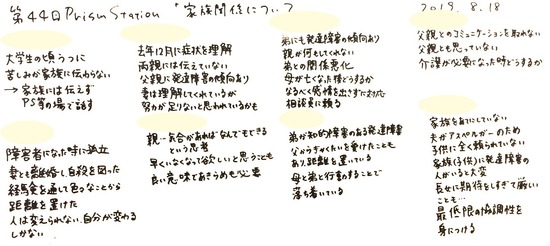 第44回PrismStation "家族関係について
2019.8.18
大学生の頃うつに
苦しみが家族に伝わらない
→家族には伝えず
PS等の場で話す
去年12月に症状を理解
両親には伝えていない
父親に発達障害の傾向あり
妻は理解してくれているが
努力が足りないと思われているかも
弟にも発達障害の傾向あり
親が何もしてくれない
弟との関係悪化
母が亡くなった時どうするか
なるべく感情を出さずに対応
相談業に頼る
父親とのコミュニケーションを取れない
父親とも思っていない
介護が必要になった時どうするか
障害者になった時に孤立
妻とも離婚し自殺を図った
経験を通して色々なことから
距離を置けた
人は変えられない自分が変わる
しかない。
親…気合があればなんでもできる
という思考
早くいなくなって欲しいと思うことも
良い意味であきらめも必要
弟が知的障害のある発達障害
父からぎゃくたいを受けたことも
あり、距離を置いている
母と弟と行動することで
落ち着いている
家族をあてにしていない
夫がアスペルガーのため
子供に全く頼られていない
家族(子供)に発達障害の
人がいると大変
長女に期待をしすぎて厳しい
ことも…
最低限の協調性を
身につける